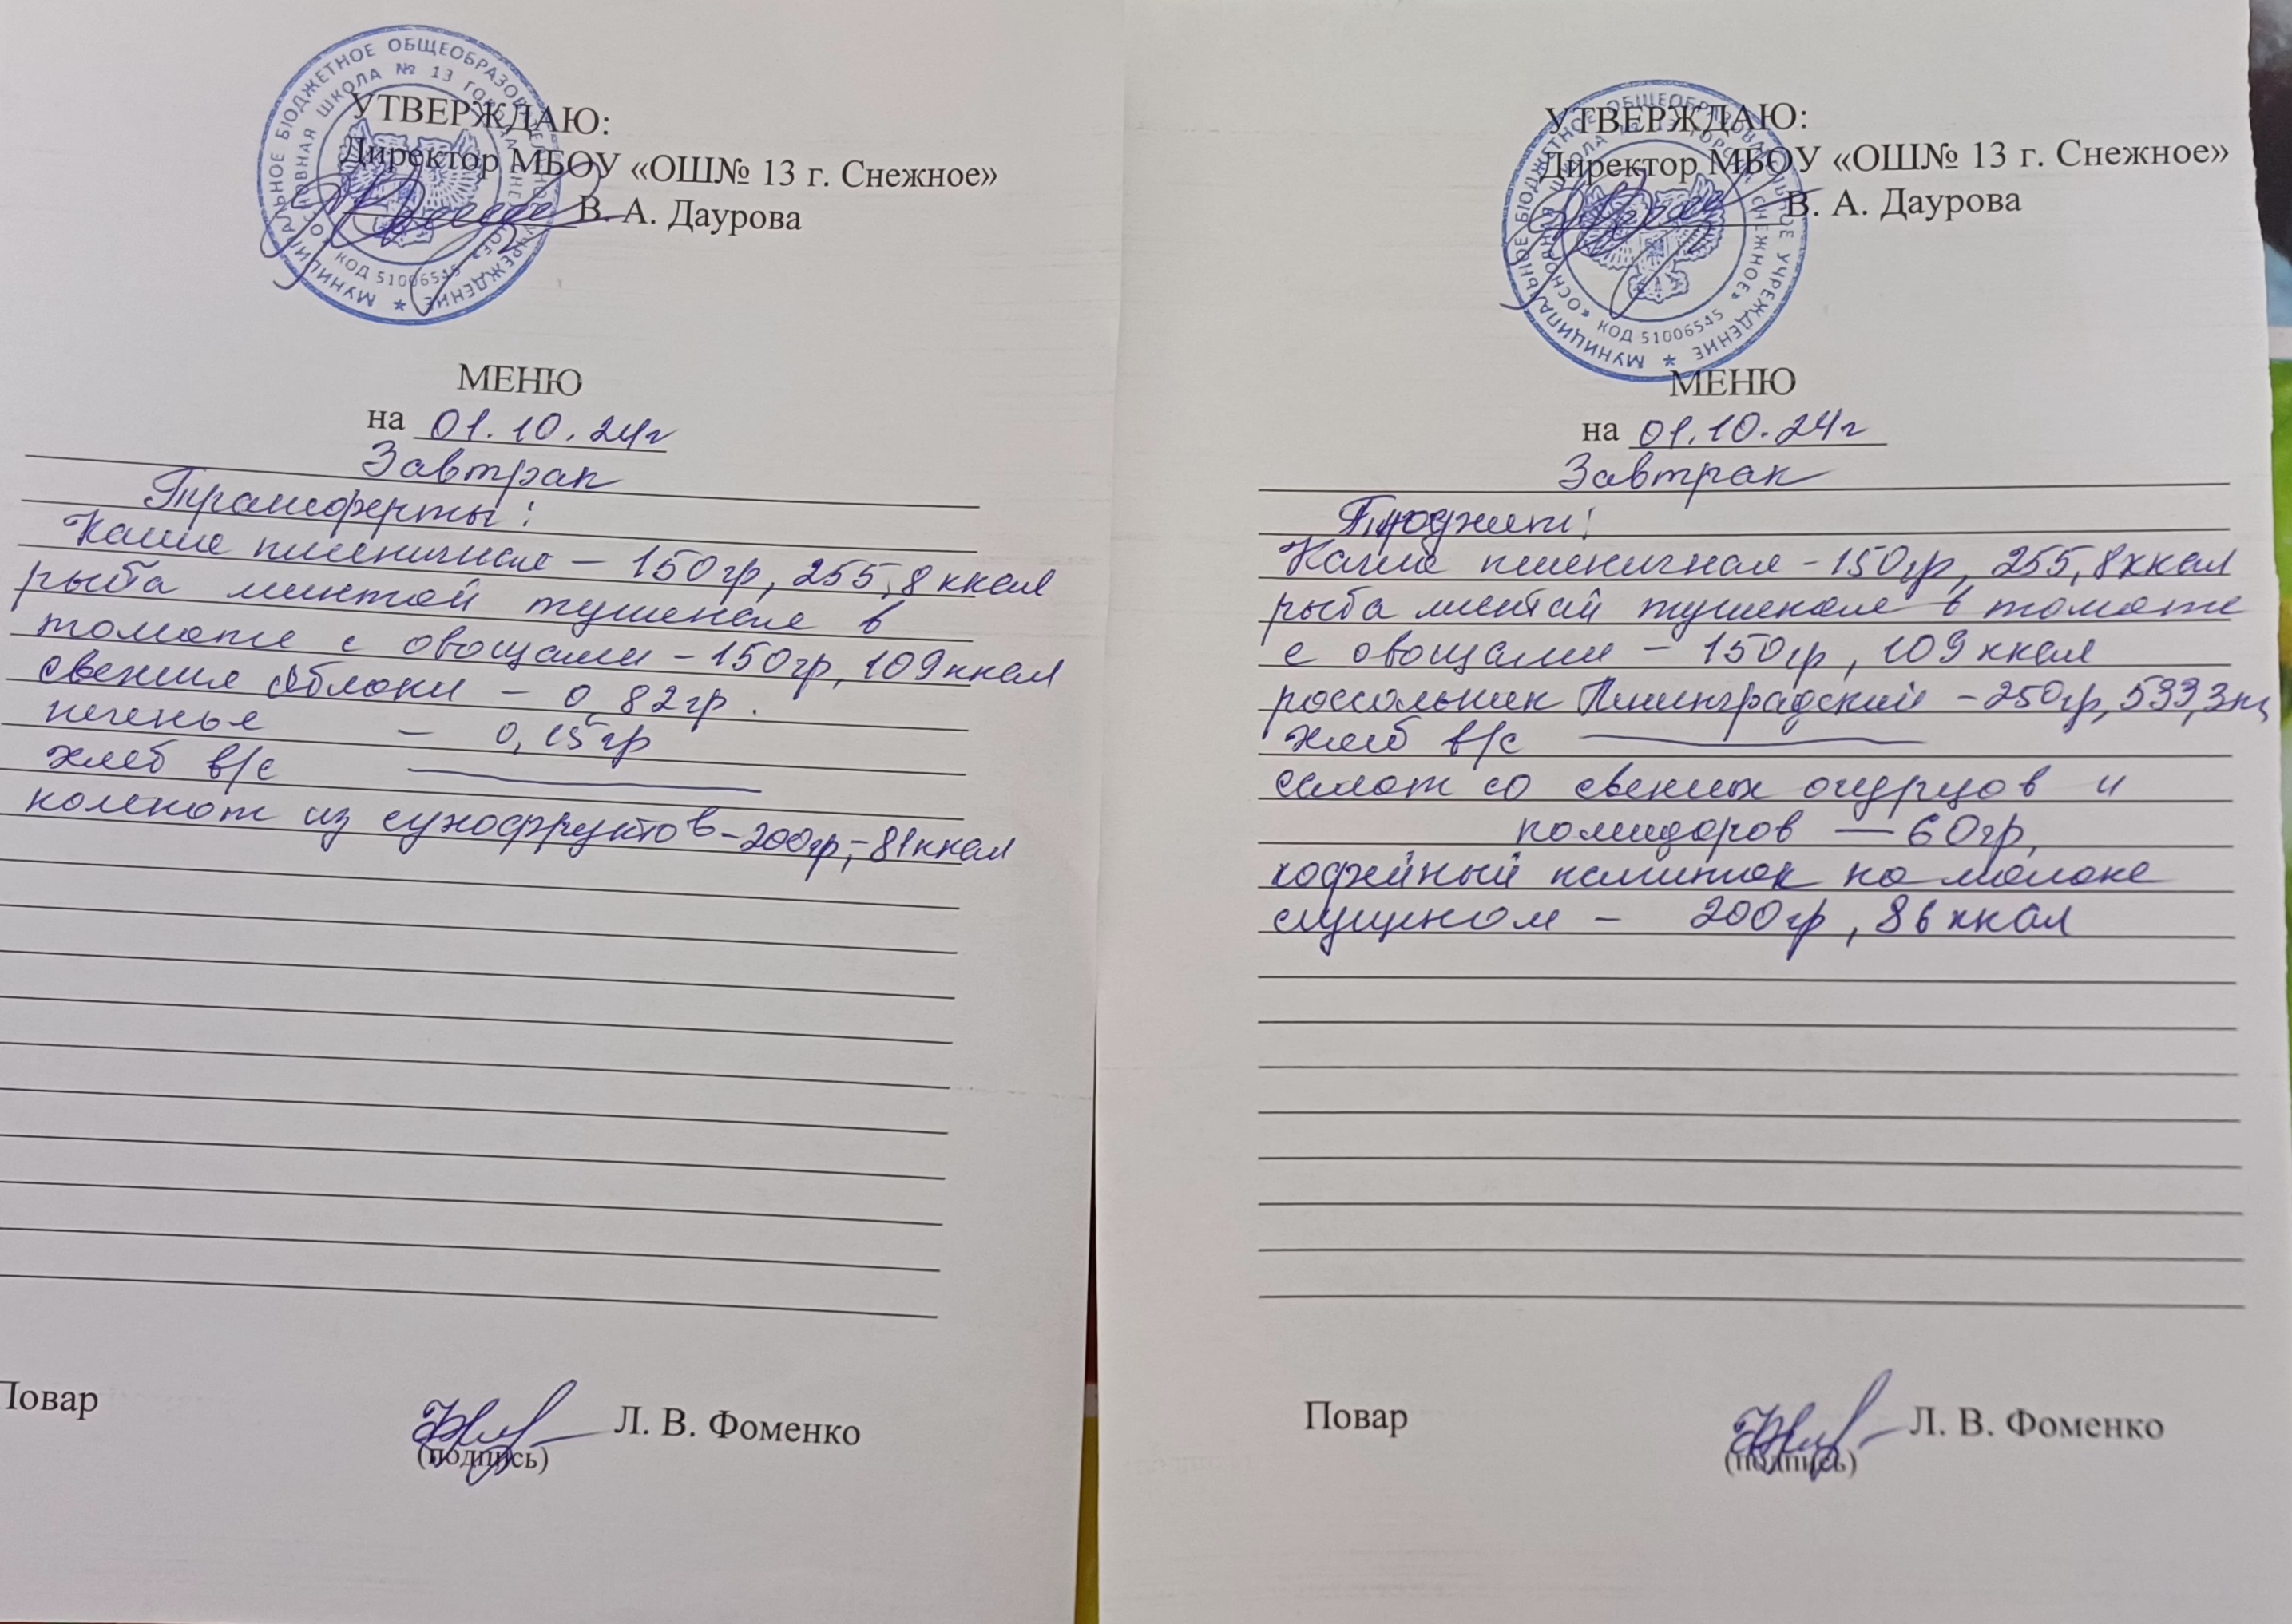 МУНИЦИПАЛЬНОЕ БЮДЖЕТНОЕ ОБЩЕОБРАЗОВАТЕЛЬНОЕ УЧРЕЖДЕНИЕ
«ОСНОВНАЯ ШКОЛА № 13 ГОРОДА СНЕЖНОЕ»
КОД 51006545
УТВЕРЖДАЮ:
Директор МБОУ «ОШ№ 13 г. Снежное»
В. А. Даурова
МЕНЮ
на 01.10.24г
Завтрак
Трансферты:
Каша пшеничная – 150гр, 255,8 ккал
рыба минтай тушеная в
томате с овощами – 150гр, 109 ккал
свежие яблоки – 0,82гр.
печенье – 0,15гр
хлеб в/с
компот из сухофруктов – 200гр, – 81 ккал
Повар
Л. В. Фоменко
(подпись)
МУНИЦИПАЛЬНОЕ БЮДЖЕТНОЕ ОБЩЕОБРАЗОВАТЕЛЬНОЕ УЧРЕЖДЕНИЕ
«ОСНОВНАЯ ШКОЛА № 13 ГОРОДА СНЕЖНОЕ»
КОД 51006545
УТВЕРЖДАЮ:
Директор МБОУ «ОШ№ 13 г. Снежное»
В. А. Даурова
МЕНЮ
на 01.10.24г
Завтрак
Бюджет:
Каша пшеничная – 150гр, 255,8 ккал
рыба минтай тушеная в томате
с овощами – 150гр, 109 ккал
россольник Ленинградский – 250гр,
хлеб в/с
салат со свежих огурцов и
помидоров — 60гр,
кофейный напиток на молоке
сгущеном – 200гр, 86 ккал
Повар
Л. В. Фоменко
(подпись)